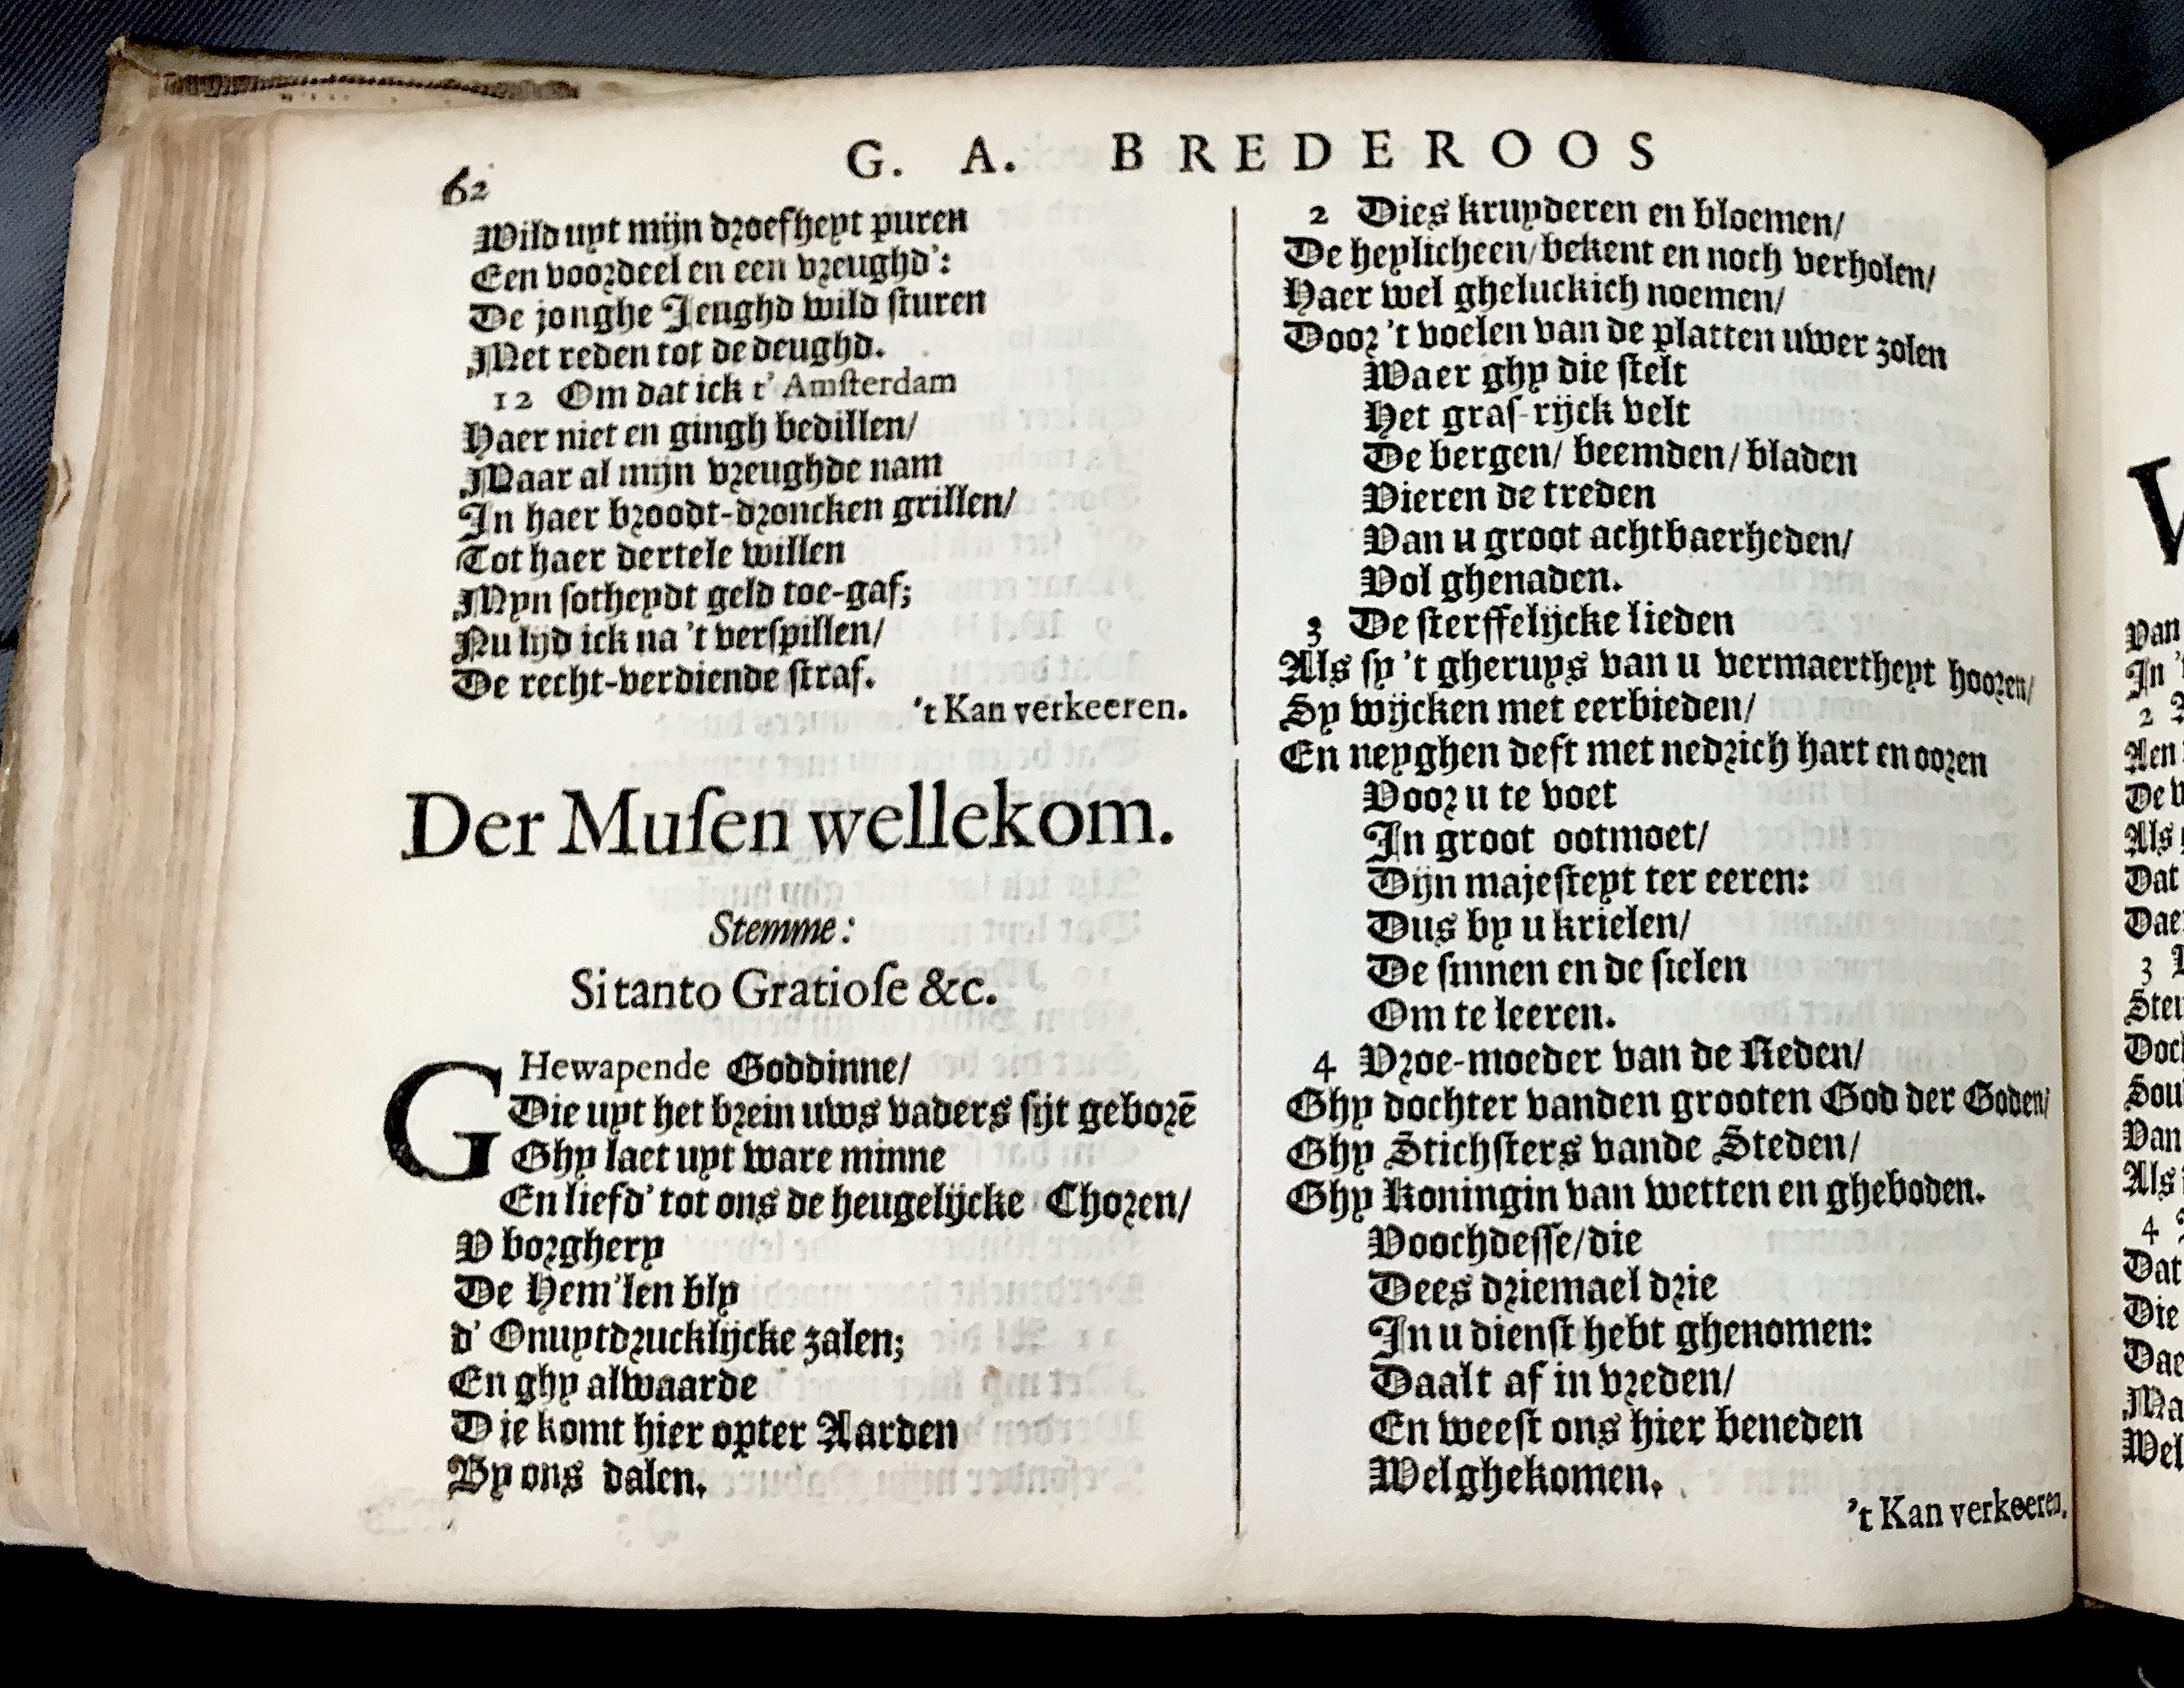 G. A. BREDEROOS
62
Wild uyt mijn droefheyt puren
Een voordeel en een vreughd':
De jonghe Jeughd wild ſturen
Met reden tot de deughd.
12 Om dat ick t' Amſterdam
Haer niet en gingh bedillen/
Maar al mijn vreughde nam
In haer broodt-droncken grillen/
Tot haer dertele willen
Myn ſotheydt geld toe-gaf;
Nu lijd ick na 't verſpillen/
De recht-verdiende ſtraf.
't Kan verkeeren.
Der Muſen wellekom.
Stemme:
Si tanto Gratioſe &c.
GHewapende Goddinne/
Die uyt het brein uws vaders ſijt geborē
Ghy laet uyt ware minne
En liefd' tot ons de heugelijcke Choren/
V borghery
De Hem'len bly
d' Onuytdrucklijcke zalen;
En ghy alwaarde
Die komt hier opter Aarden
By ons dalen.
2 Dies kruyderen en bloemen/
De heylicheen/bekent en noch verholen/
Haer wel gheluckich noemen/
Door 't voelen van de platten uwer zolen
Waer ghy die ſtelt
Het graſ-rijck velt
De bergen/ beemden/ bladen
Vieren de treden
Van u groot achtbaerheden/
Vol ghenaden.
3 De ſterffelijcke lieden
Als ſy 't gheruys van u vermaertheyt hooren/
Sy wijcken met eerbieden/
En neyghen deft met nedrich hart en ooren
Voor u te voet
In groot ootmoet/
Dijn majeſteyt ter eeren:
Dus by u krielen/
De ſinnen en de ſielen
Om te leeren.
4 Vroe-moeder van de Reden/
Ghy dochter vanden grooten God der Goden/
Ghy Stichſters vande Steden/
Ghy Koningin van wetten en gheboden.
Voochdeſſe/die
Dees driemael drie
In u dienſt hebt ghenomen:
Daalt af in vreden/
En weeſt ons hier beneden
Welghekomen.
't Kan verkeeren.
Van
In '
2
Aen
De
Als
Dat
Dae
3
Doch
Sou
Van
Als
4
Dat
Die
Dae
Ma
Wel